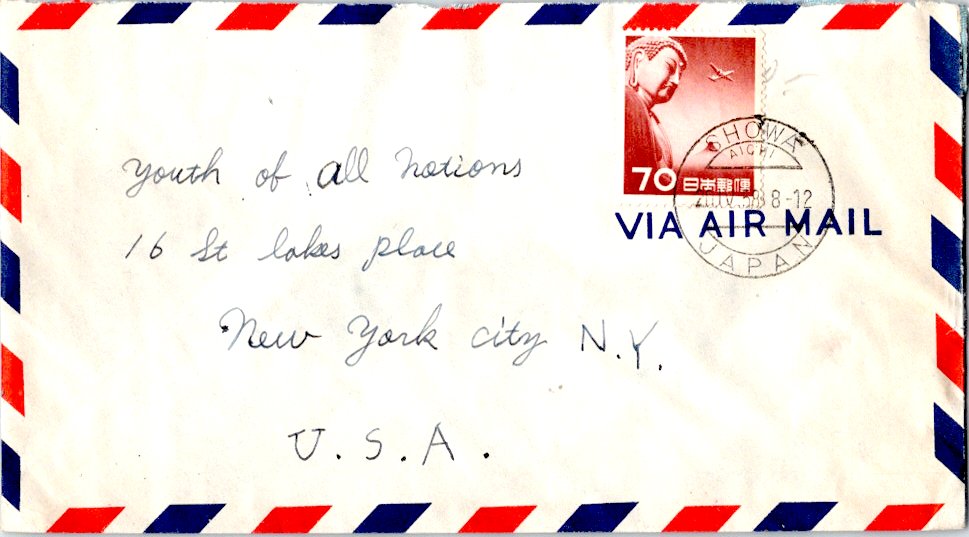 Youth of All Nations
16 St lakes place
New York city N.Y.
U.S.A.
70 日本郵便
VIA AIR MAIL
SHOWA
AICHI
8-12
JAPAN